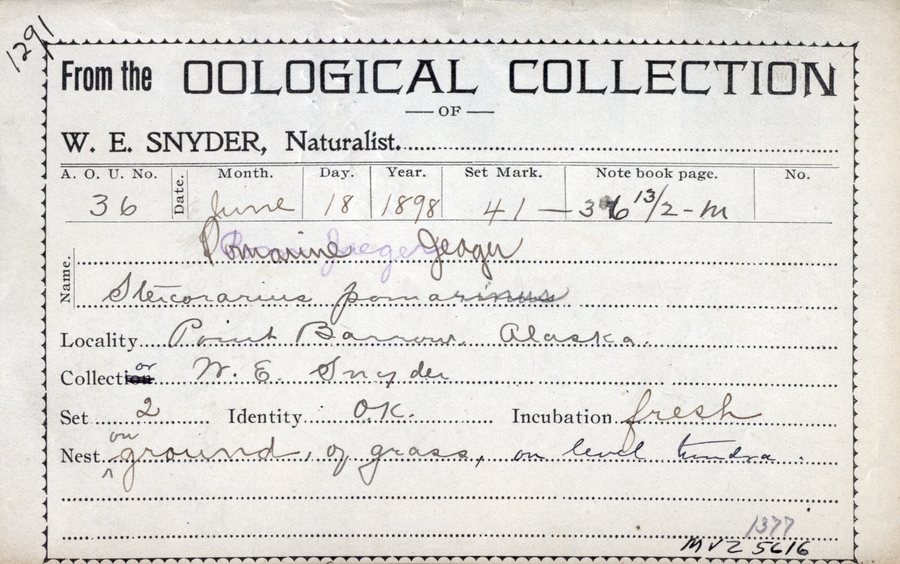 1291
From the OOLOGICAL COLLECTION
— OF —
W. E. SNYDER, Naturalist.
A. O. U. No. Date. Month. Day. Year. Set Mark. Note book page. No.
36 June 18 1898 41 — 36 13/2-m
Name. Pomarine Jeager
Stercorarius pomarinus
Locality Point Barrow. Alaska.
Collector W. E. Snyder
Set 2 Identity O.K. Incubation fresh
Nest on ground, of grass, on level tundra.
1377
MVZ 5616